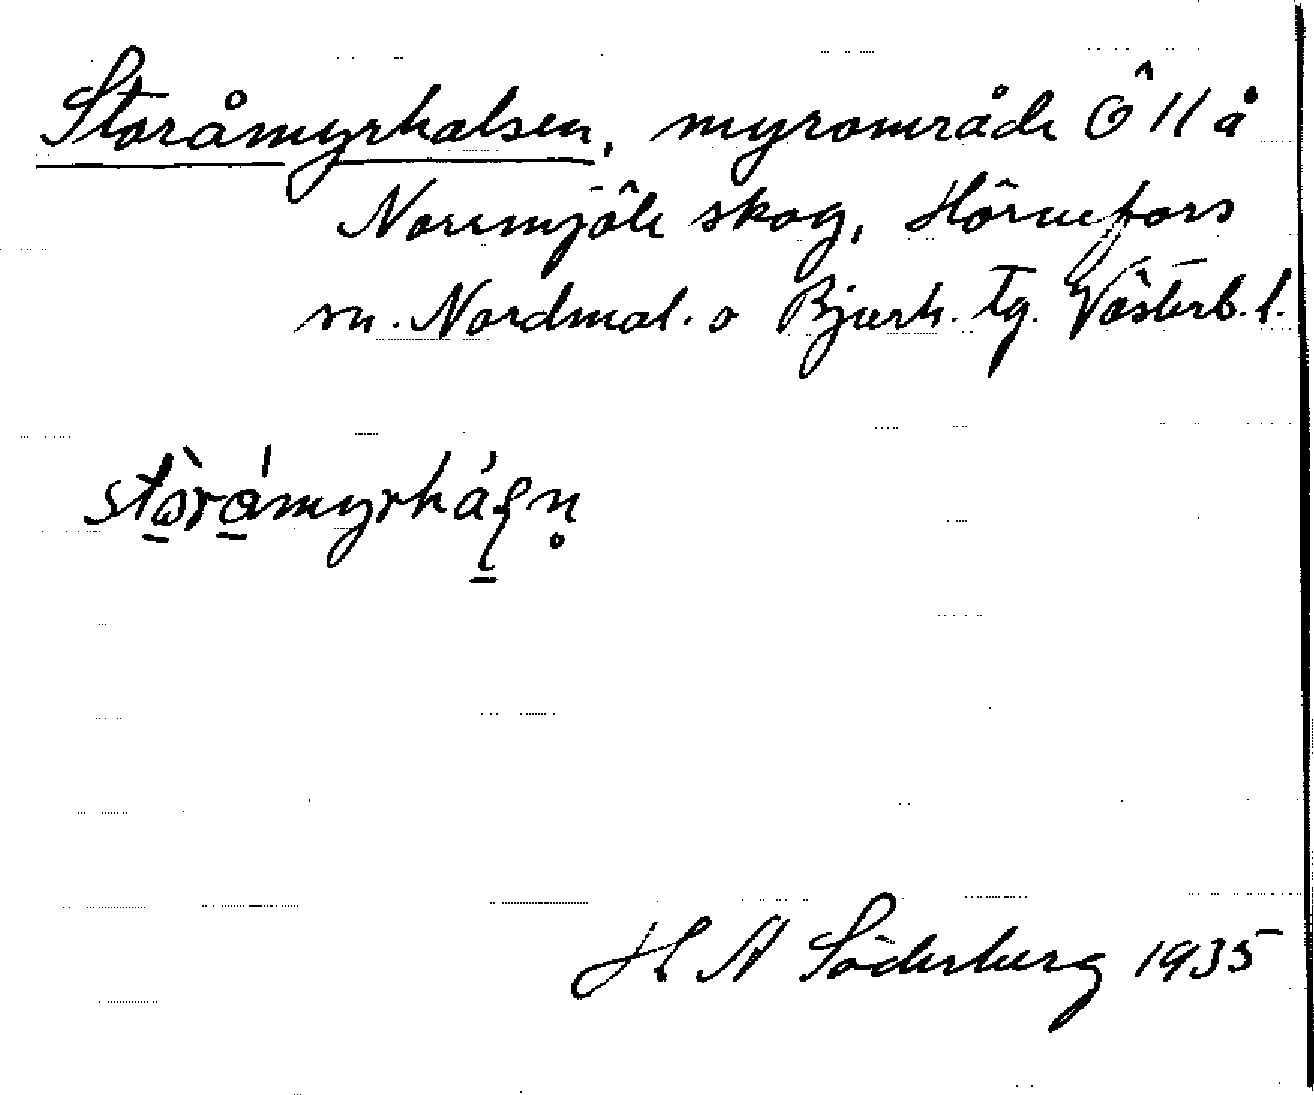 Storåmyrhalsen, myrområde Ö 11 å
Norrmjöle skog, Hörnefors
sn. Nordmal. o Bjurh. tg. Västerb. l.
H A Söderberg 1935